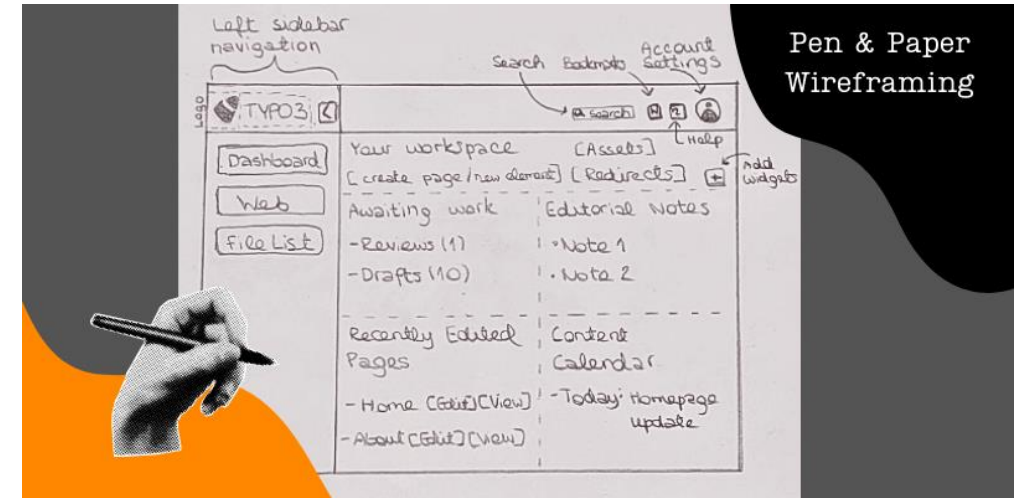 Left sidebar
navigation
Pen & Paper
Wireframing
Search Bookmarks Account
Settings
Logo
TYPO3
search
?
Help
Add
widgets
Dashboard
Web
File List
Your workspace [Assets]
[create page/new element] [Redirects] +
Awaiting work
-Reviews (1)
-Drafts (10)
Editorial Notes
•Note 1
•Note 2
Recently Edited
Pages
-Home [Edit][View]
-About [Edit][View]
Content
Calendar
-Today: Homepage
update